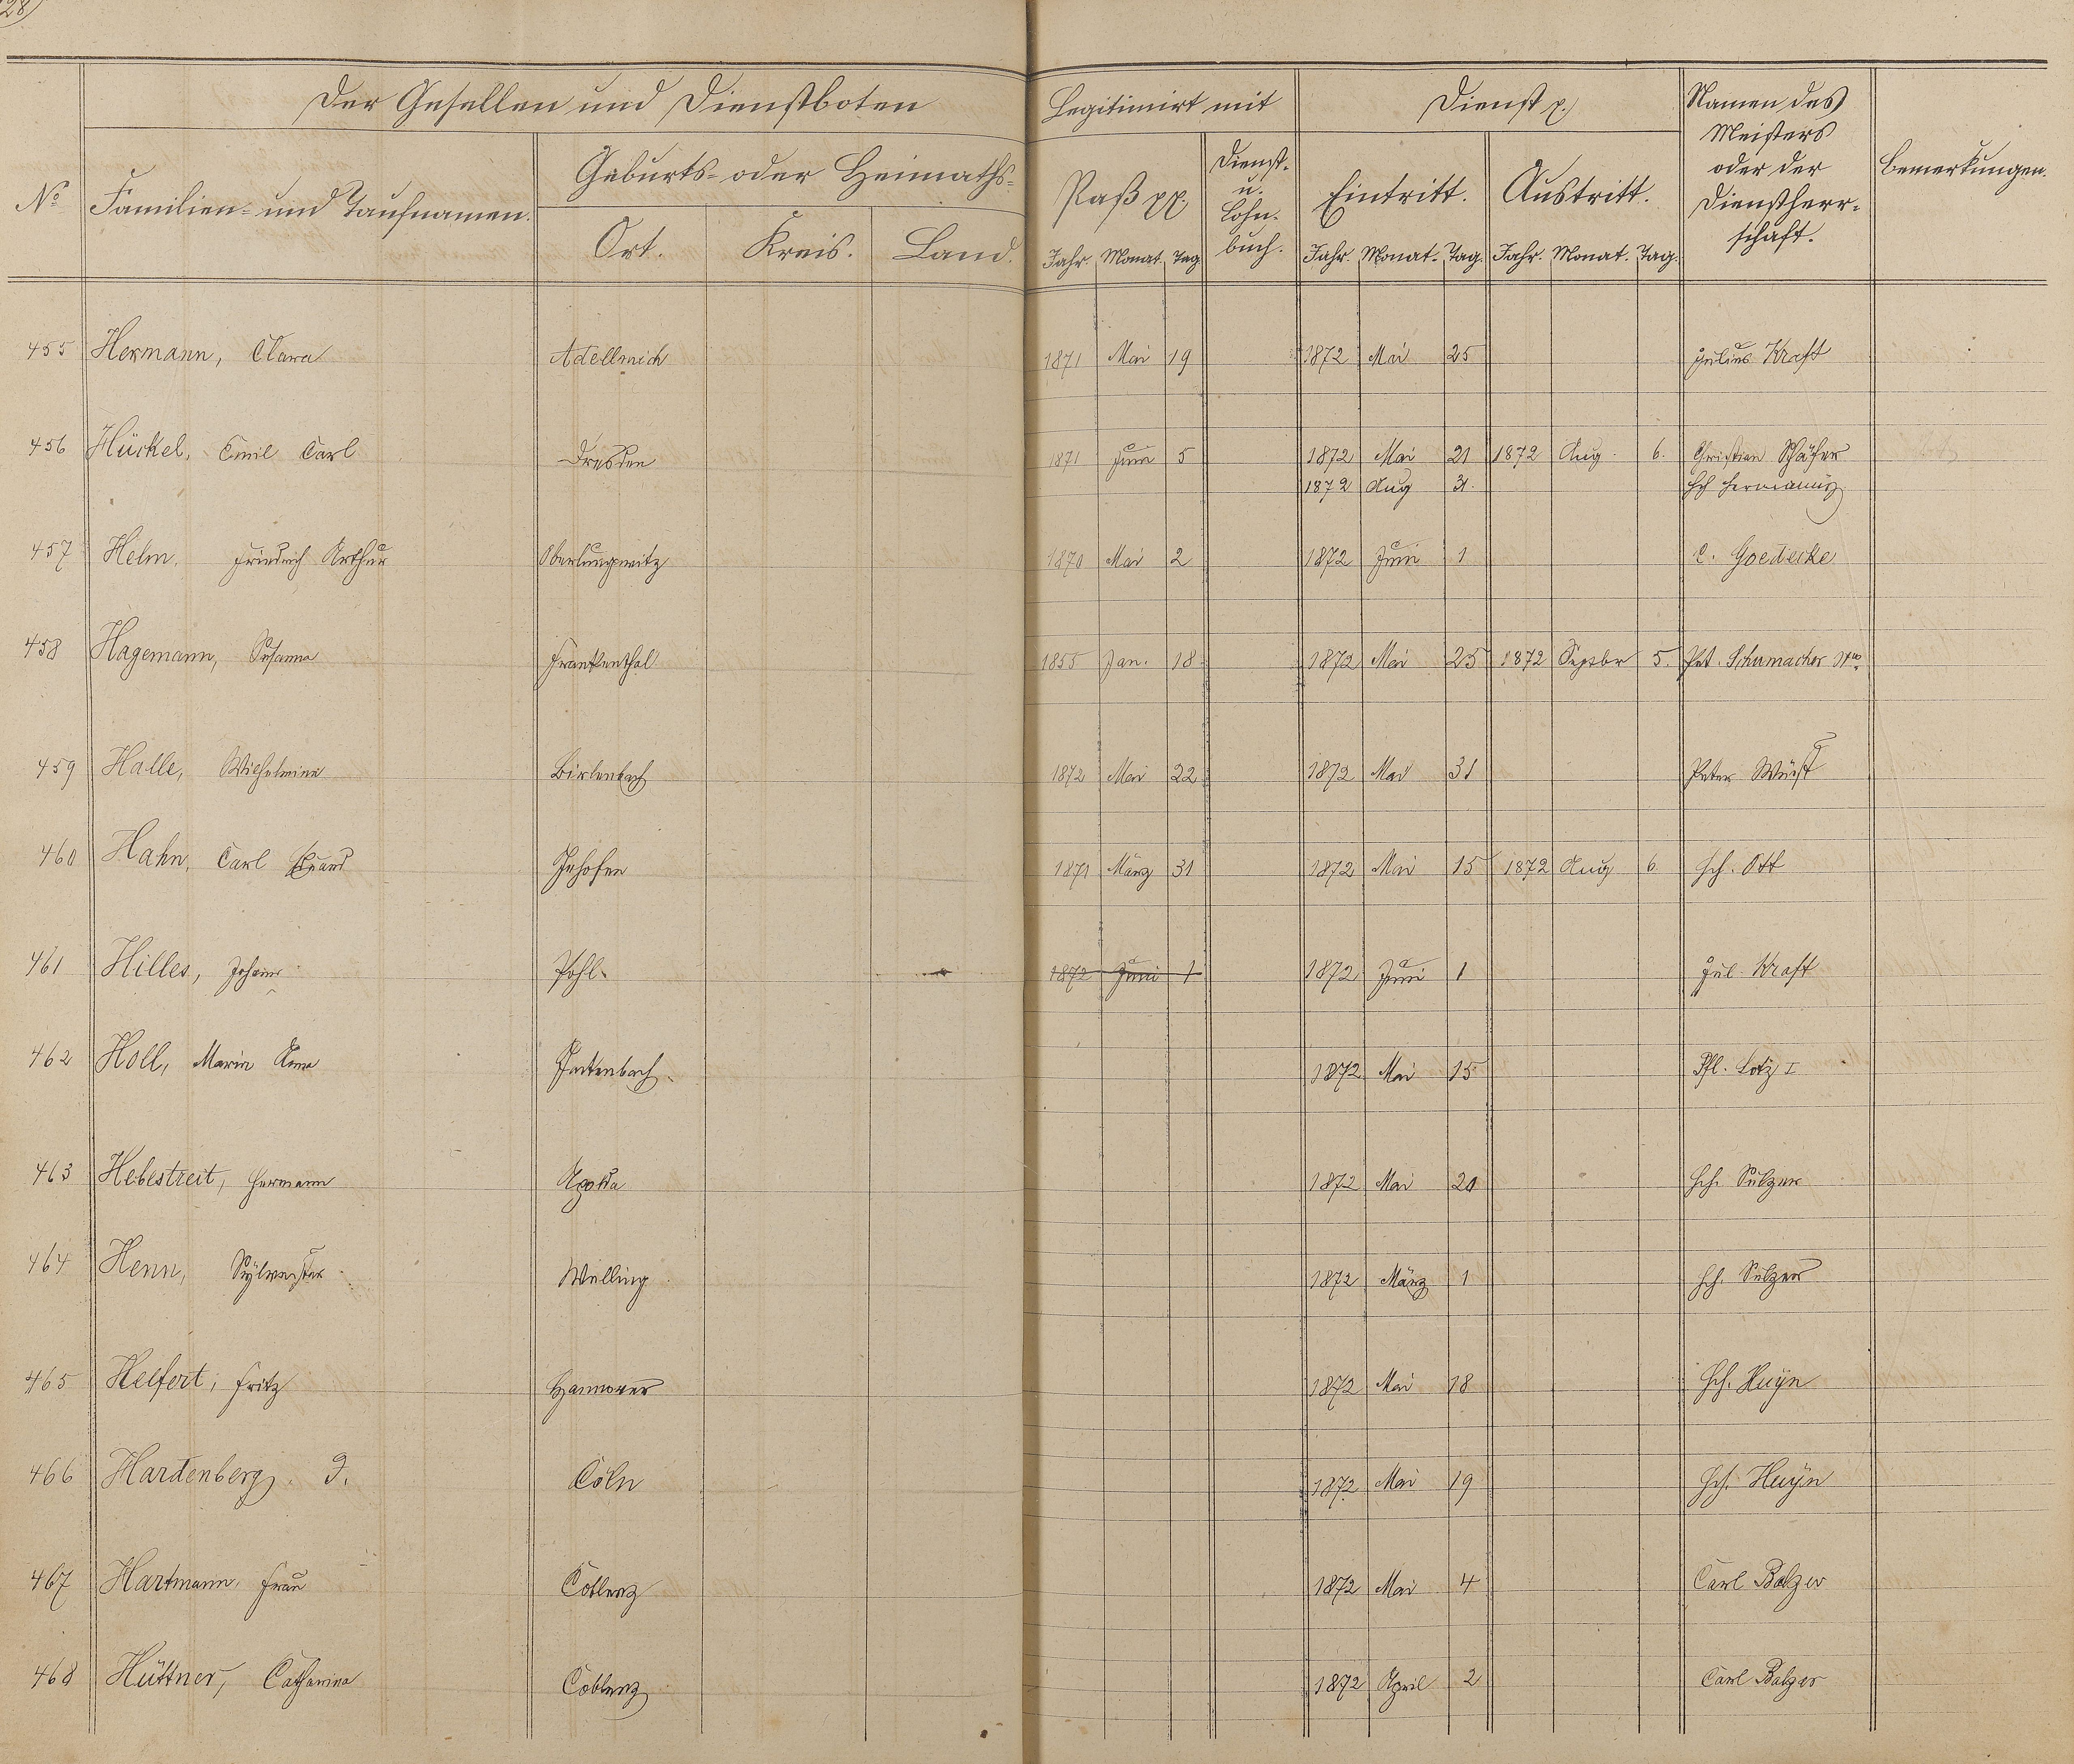 28
Der Gesellen und Dienstboten
Legitimirt mit
Dienst p.
Namen des
Meisters
oder der
Dienstherr-
schaft.
Bemerkungen.
No
Familien- und Taufnamen.
Geburts- oder Heimaths-
Ort. Kreis. Land.
Paß pp.
Dienst-
u.
Lohn-
buch.
Eintritt. Austritt.
Jahr. Monat. Tag. Jahr. Monat. Tag. Jahr. Monat. Tag.
455 Hermann, Clara 1871 Mai 19 1872 Mai 25 Julius Kraft
456 Hückel, Emil Carl Dresden 1871 Juni 5 1872 Mai 21 1872 Aug. 6. Christian Schäfer
1872 Aug 31.
457 Helm, Friedrich Arthur Oberlungwitz 1870 Mai 2 1872 Juni 1 C. Goedecke
458 Hagemann, Susanna Frankenthal 1855 Jan. 18 1872 Mai 25 1872 Septbr 5. Pet. Schumacher
459 Halle, Wilhelmine Birlenbach 1872 Mai 22 1872 Mai 31 Peter Wüst
460 Hahn, Carl Eduard 1871 März 31 1872 Mai 15 1872 Aug 6 Hch. Ott
461 Hilles, Johann Pohl. 1872 Juni 1 1872 Juni 1 Jul. Kraft
462 Holl, Maria Anna 1872 Mai 15 Lotz I
463 Hebestreit, Hermann Apolda 1872 Mai 20 Hch. Sulzer
464 Henn, Sylvester Welling 1872 März 1 Hch. Sulzer
465 Helfert, Fritz Hannover 1872 Mai 18 Hch. Huyn
466 Hardenberg, J. Cöln 1872 Mai 19 Hch. Huyn
467 Hartmann, Frau Coblenz 1872 Mai 4 Carl Balzer
468 Hüttner, Catharina Coblenz 1872 April 2 Carl Balzer